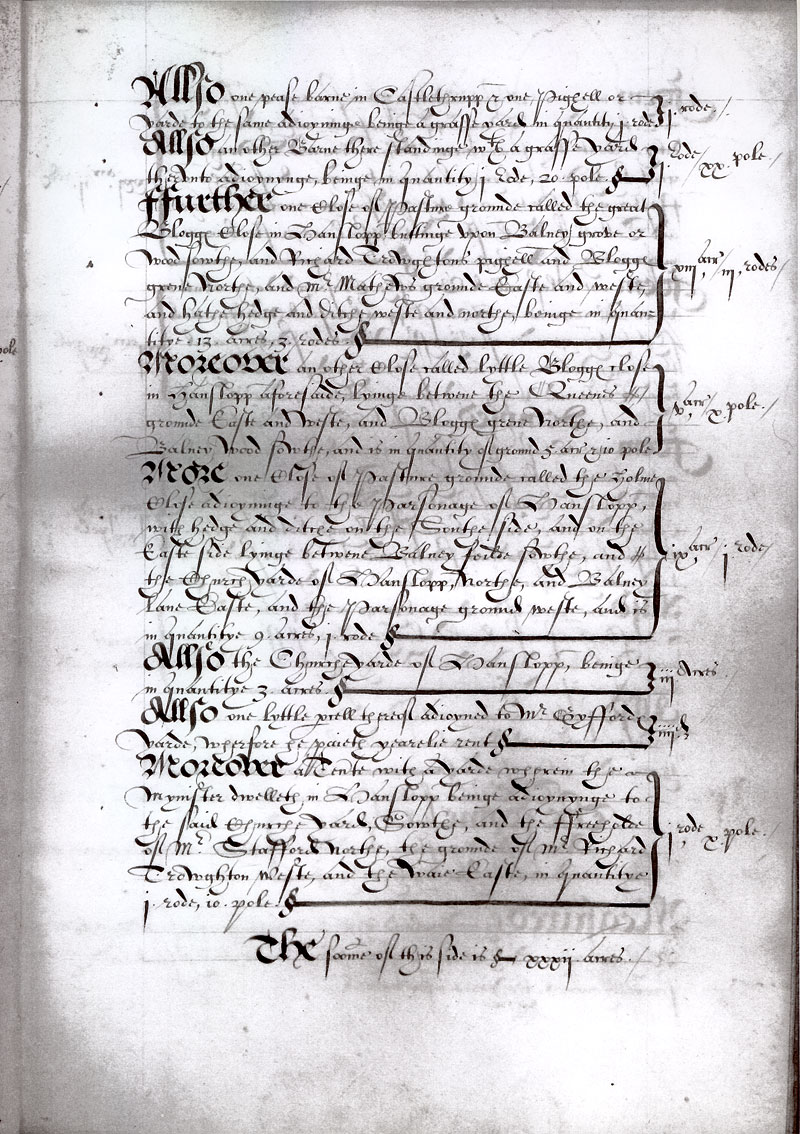 Allso one pease barne in Castlethrupp & one Pighell or
yarde to the same adioyninge beinge a grasse yard in quantity j rode j. rode /
Allso an other Barne there standinge wth a grasse yard
therunto adioynynge, beinge in quantity j. rode, 20. pole. j rode / xx. pole. /
ffurther one Close of Pasture grounde called the great
Blogge Close in Hanslopp buttinge upon Balney grove or
wood sowthe, and Richard Trowghtons pighell and Blogge
grene Northe, and Mr. Mathews grounde Easte and weste,
and hathe hedge and ditche weste and northe, beinge in quan
titye . 13. acres, 3. rodes. xiij acr / iij. rodes /
Moreover an other Close called lyttle Blogge close
in Hanslopp aforesaide, lyinge betwene the Queenes
grounde Easte and weste, and Blogge grene Northe, and
Balney wood sowthe, and is in quantity of ground 5 acr & 10 pole. v acr / x. pole. /
More one Close of Pasture grounde called the Holme
Close adioyninge to the Parsonage of Hanslopp,
with hedge and ditche on the Southe side, and on the
Easte side lyinge betwene Balney feilde sowthe, and
the Church yarde of Hanslopp, Northe, and Balney
Lane Easte, and the Parsonage ground weste, and is
in quantitye 9. acres, j. rode ix acr / j rode /
Allso the Churche yarde of Hanslopp, beinge
in quantitye 3. acres. iij acres. /
Allso one lyttle pcell therof adioyned to Mr. Gyfford
yarde, wherfore he paieth yearelie rent iiij d
Moreover a Tente with a yarde wherein the
Mynister dwelleth in Hanslopp beinge adioynynge to
the said Churche yard, Sowthe, and the ffreeholde
of Mr. Stafford Northe, the grounde of Mr. Richard
Trowghton weste, and the waie Easte, in quantitye
j. rode, 10. pole. j rode / x. pole. /
The some of this side is xxxij. acres. /